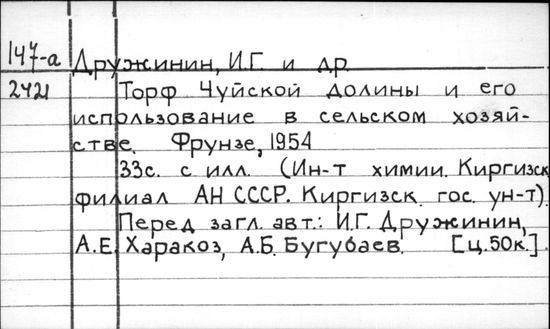 147-а Дружинин, И.Г. и др
2421 Торф Чуйской долины и его
использование в сельском хозяй-
стве. Фрунзе, 1954
33с. с илл. (Ин-т химии. Киргизск.
филиал АН СССР. Киргизск. гос. ун-т).
Перед загл. авт.: И.Г. Дружинин,
А.Е. Харакоз, А.Б. Бугубаев. [ц.50к.].